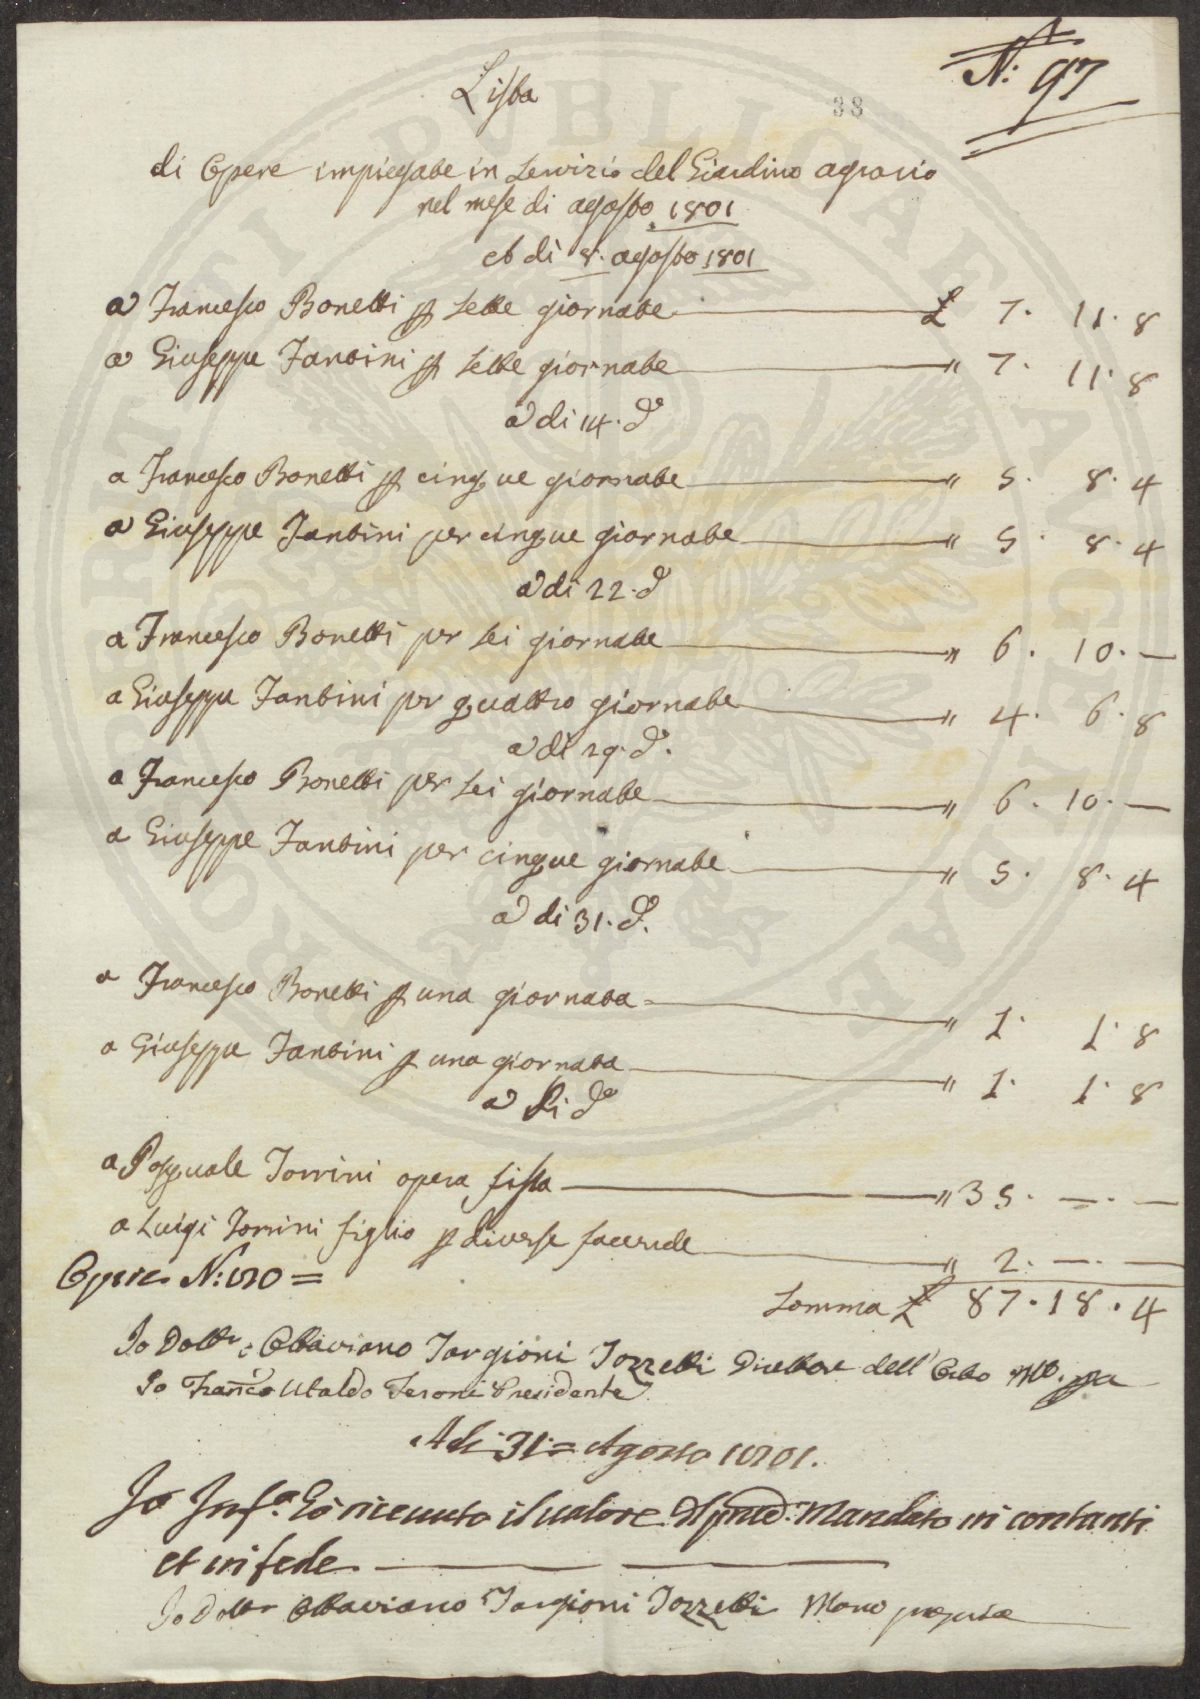 N: 97
38
Lista
di Opere impiegate in servizio del Giardino agrario
nel mese di agosto 1801
A dì 8. agosto 1801
a Francesco Bonetti p sette giornate £ 7. 11. 8
a Giuseppe Fantini p sette giornate " 7. 11. 8
a di 14. do
a Francesco Bonetti p cinque giornate " 5. 8. 4
a Giuseppe Fantini per cinque giornate " 5. 8. 4
a di 22. do
a Francesco Bonetti per sei giornate " 6. 10. —
a Giuseppe Fantini per quattro giornate " 4. 6. 8
a di 29. do.
a Francesco Bonetti per sei giornate " 6. 10. —
a Giuseppe Fantini per cinque giornate " 5. 8. 4
a di 31. do.
a Francesco Bonetti p una giornata " 1. 1. 8
a Giuseppe Fantini p una giornata " 1. 1. 8
a di do
a Pasquale Torrini opera fissa " 35. — —
a Luigi Torrini figlio p diverse faccende " 2. — —
N: =
Somma £ 87. 18. 4
Io Dottr: Ottaviano Targioni Tozzetti Direttore dell' Orto mo. ppa
Io Franco Ubaldo Feroni Presidente
A di 31 = Agosto 1801.
Io Info. hò ricevuto il valore dl pnte Mandato in contanti
et in fede
Io Dottr Ottaviano Targioni Tozzetti Mano propria